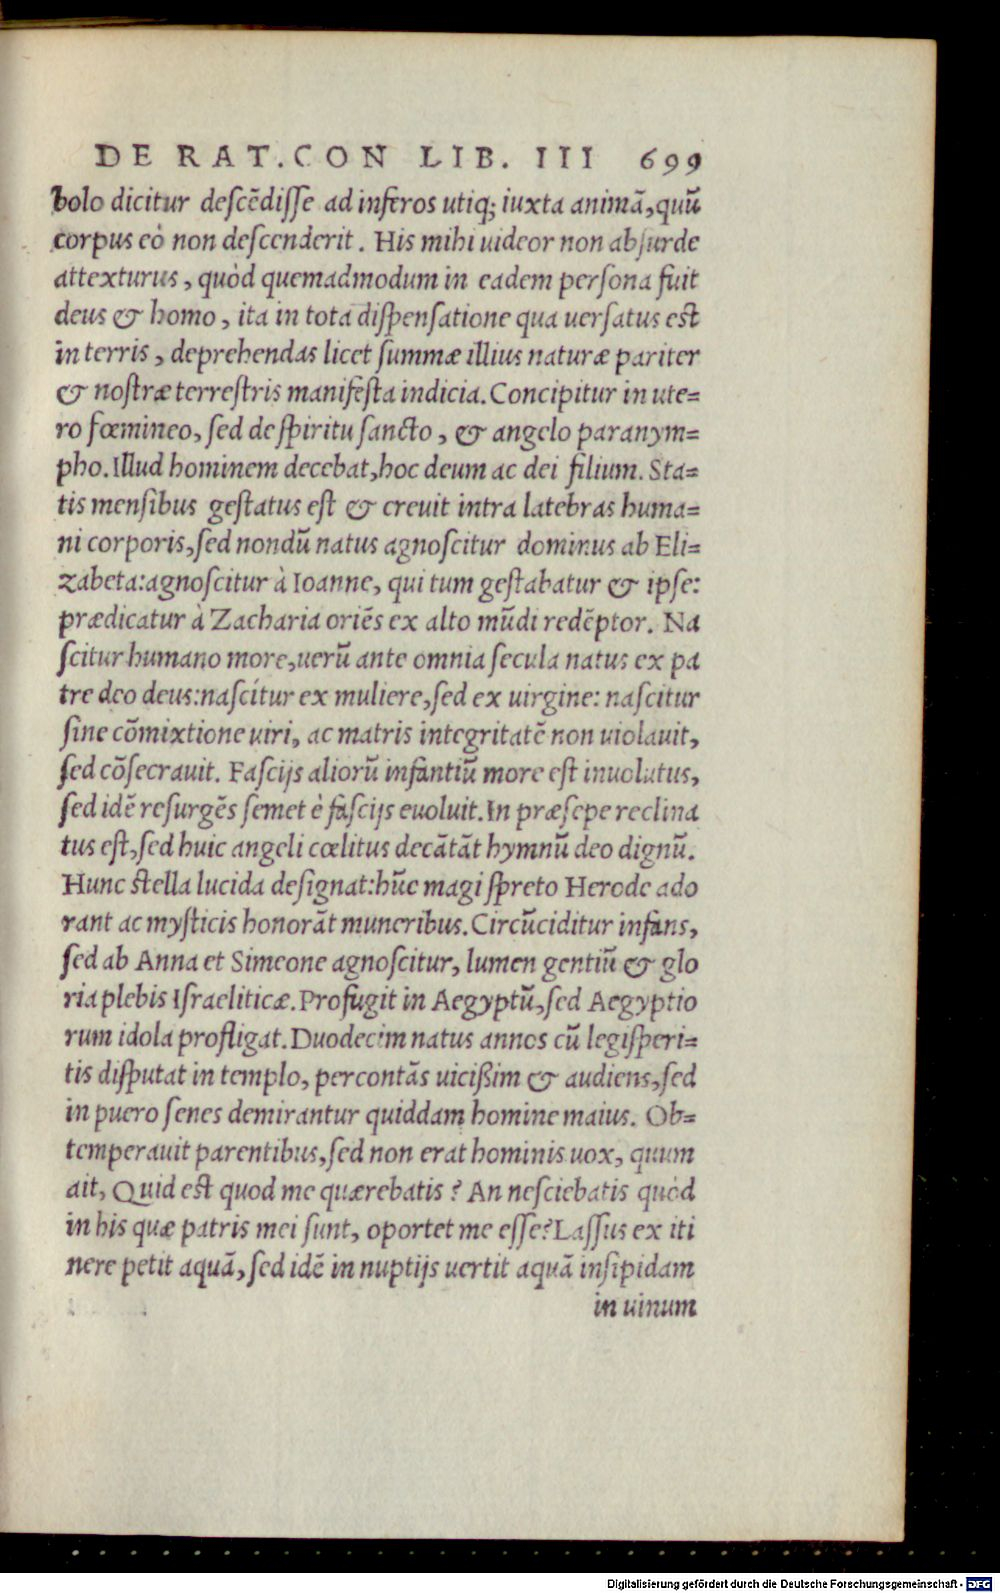 DE RAT. CON LIB. III 699
bolo dicitur descẽdisse ad inferos utiq; iuxta animã, quũ
corpus eò non descenderit. His mihi uideor non absurde
attexturus, quòd quemadmodum in eadem persona fuit
deus & homo, ita in tota dispensatione qua uersatus est
in terris, deprehendas licet summæ illius naturæ pariter
& nostræ terrestris manifesta indicia. Concipitur in ute=
ro fœmineo, sed de spiritu sancto, & angelo paranym=
pho. Illud hominem decebat, hoc deum ac dei filium. Sta=
tis mensibus gestatus est & creuit intra latebras huma=
ni corporis, sed nondũ natus agnoscitur dominus ab Eli=
zabeta: agnoscitur à Ioanne, qui tum gestabatur & ipse:
prædicatur à Zacharia oriẽs ex alto mũdi redẽptor. Na
scitur humano more, uerũ ante omnia secula natus ex pa
tre deo deus: nascitur ex muliere, sed ex uirgine: nascitur
sine cõmixtione uiri, ac matris integritatẽ non uiolauit,
sed cõsecrauit. Fascijs aliorũ infantiũ more est inuolutus,
sed idẽ resurgẽs semet è fascijs euoluit. In præsepe reclina
tus est, sed huic angeli cœlitus decãtãt hymnũ deo dignũ.
Hunc stella lucida designat: hũc magi spreto Herode ado
rant ac mysticis honorãt muneribus. Circũciditur infans,
sed ab Anna et Simeone agnoscitur, lumen gentiũ & glo
ria plebis Israeliticæ. Profugit in Aegyptũ, sed Aegyptio
rum idola profligat. Duodecim natus annos cũ legisperi=
tis disputat in templo, percontãs uicißim & audiens, sed
in puero senes demirantur quiddam homine maius. Ob=
temperauit parentibus, sed non erat hominis uox, quum
ait, Quid est quod me quærebatis? An nesciebatis quòd
in his quæ patris mei sunt, oportet me esse? Lassus ex iti
nere petit aquã, sed idẽ in nuptijs uertit aquã insipidam
in uinum
Digitalisierung gefördert durch die Deutsche Forschungsgemeinschaft - DFG